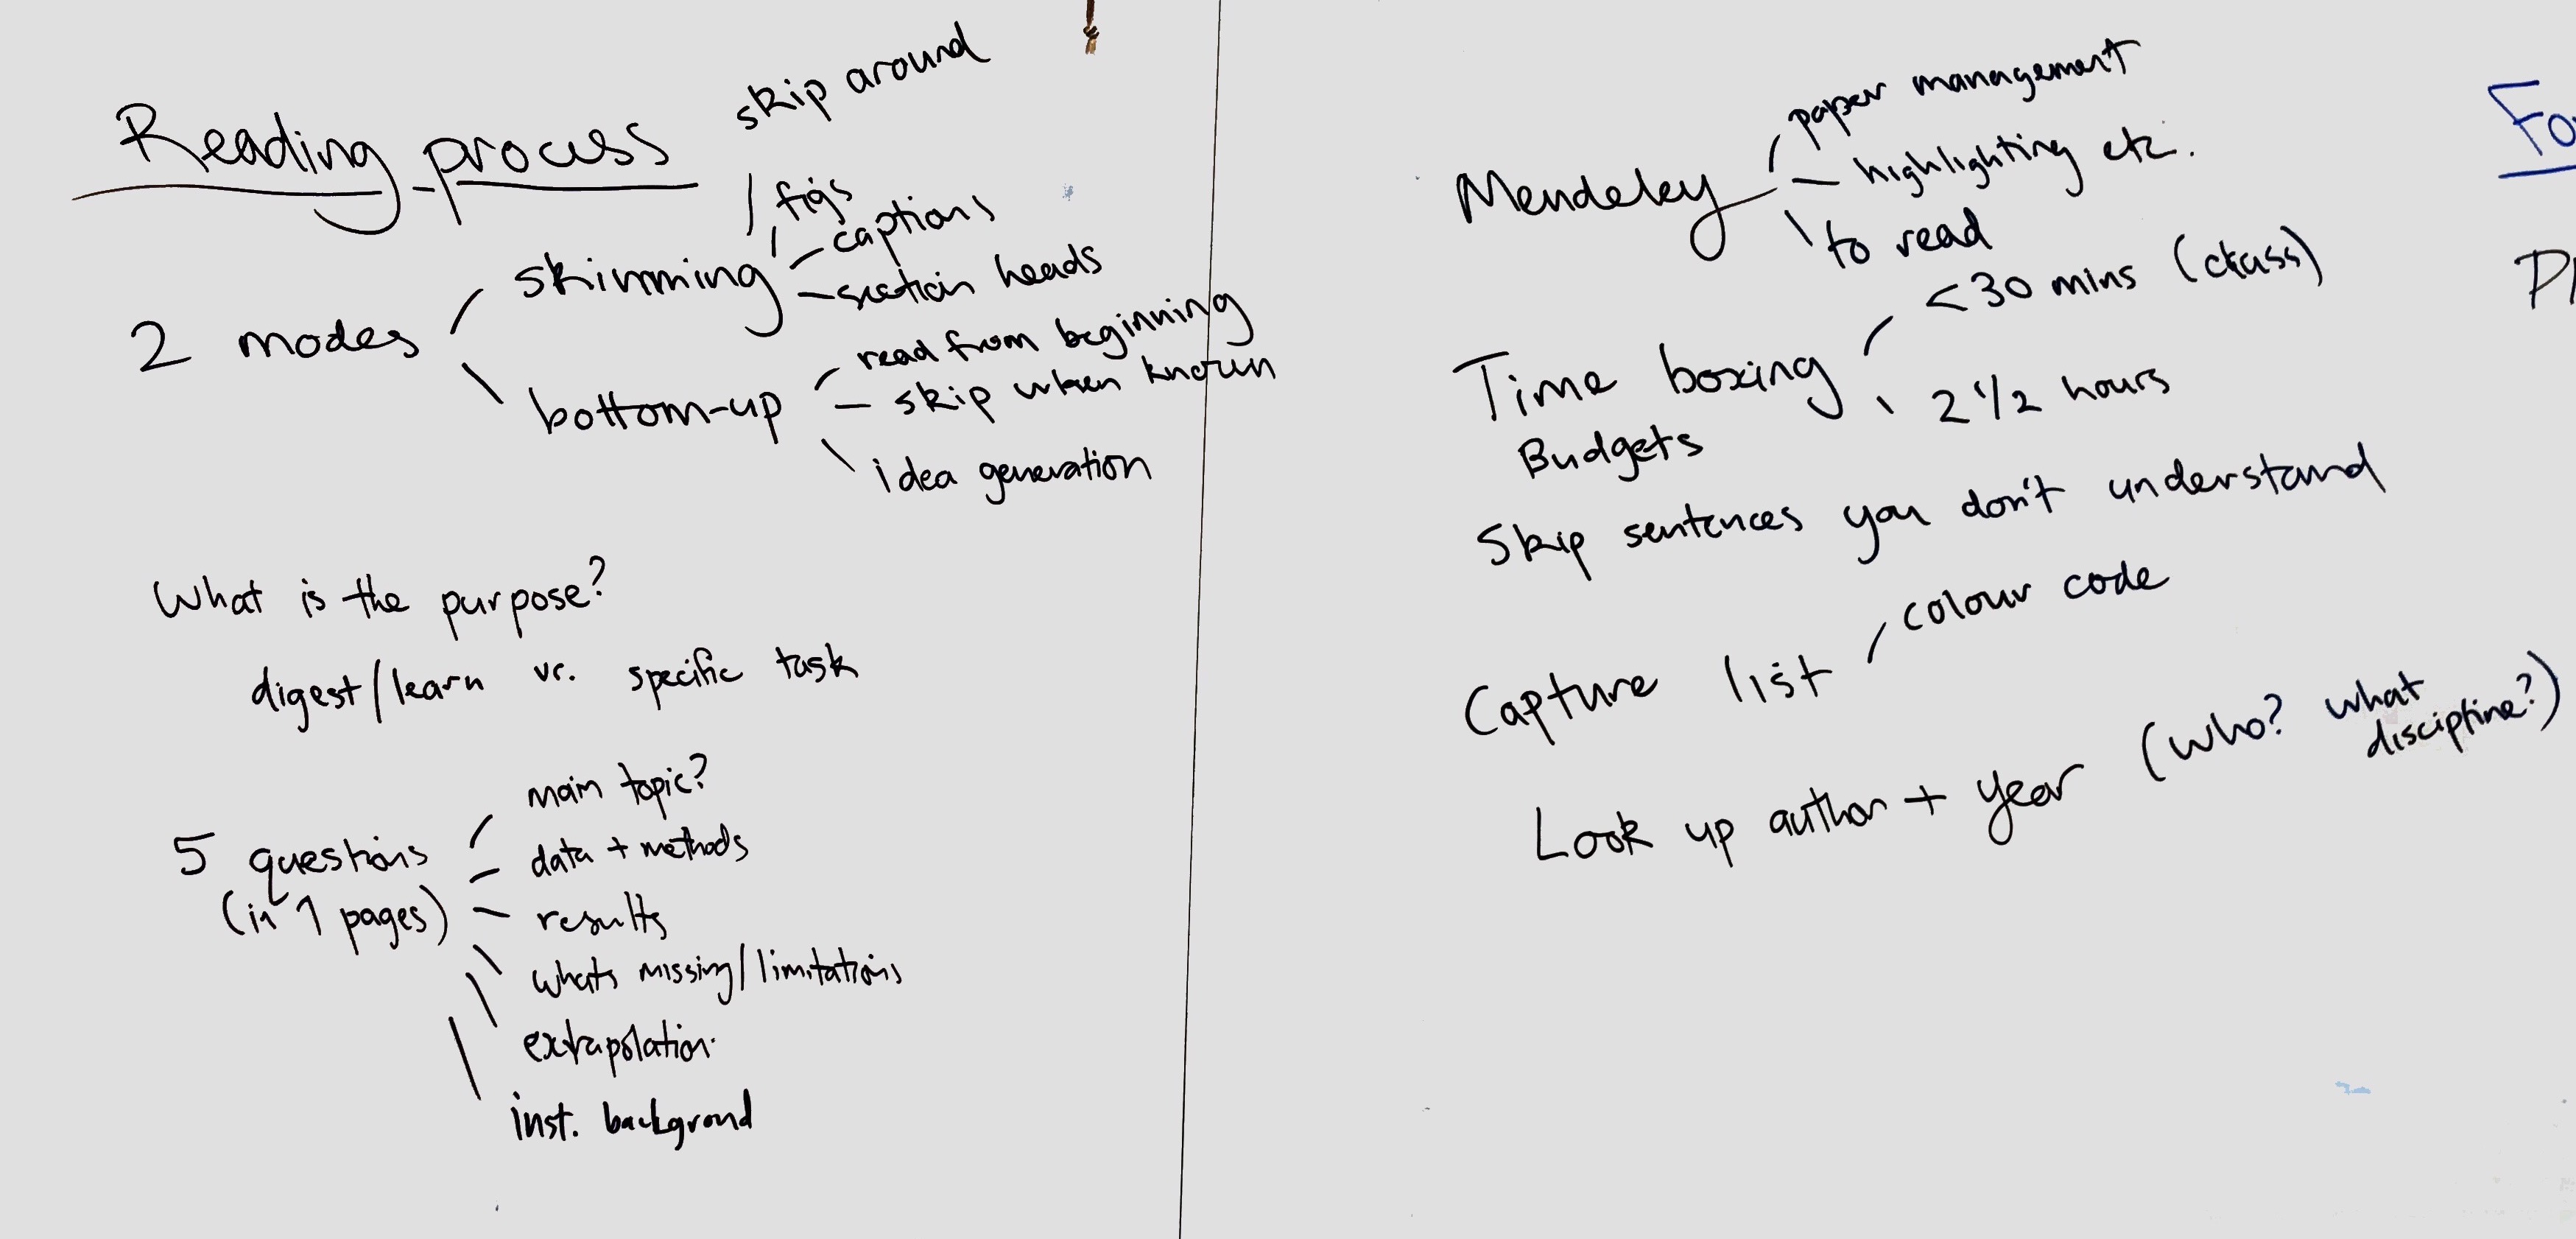 Reading process
skip around
2 modes
skimming
figs
captions
section heads
bottom-up
read from beginning
skip when known
idea generation
What is the purpose?
digest/learn vs. specific task
5 questions
(in 1 pages)
main topic?
data + methods
results
whats missing/limitations
extrapolation
inst. background
Mendeley
paper management
highlighting etc.
to read
Time boxing
Budgets
<30 mins (class)
2 1/2 hours
Skip sentences you don't understand
Capture list
colour code
Look up author + year (who? what
discipline?)